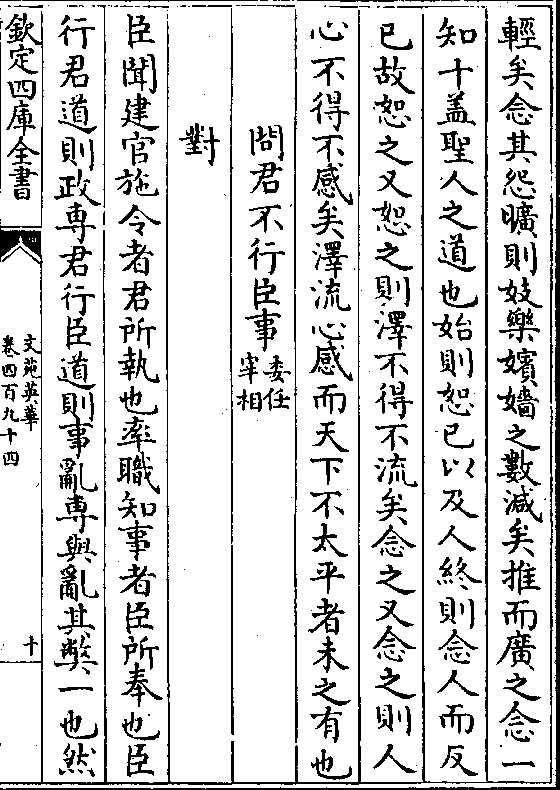 輕矣念其怨曠則妓樂嬪嬙之數減矣推而廣之念一
知十盖聖人之道也始則恕已以及人終則念人而反
已故恕之又恕之則澤不得不流矣念之又念之則人
心不得不感矣澤流心感而天下不太平者未之有也
問君不行臣事委任宰相
對
臣聞建官施令者君所執也率職知事者臣所奉也臣
行君道則政専君行臣道則事亂専與亂其獘一也然
欽定四庫全書
文苑英華
卷四百九十四
十